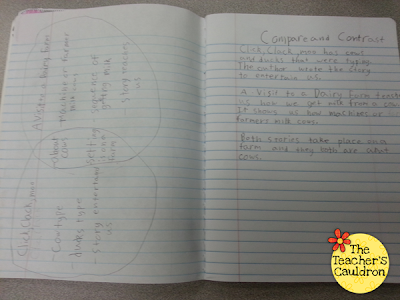 A Visit to a Dairy Farm
Machine or farmer
milk cows
sequence of
getting milk
Story teaches
us
About
cows
Setting
is on a
farm
Click, Clack, moo
Cow type
ducks type
Story entertained
us
Compare and Contrast
Click, Clack, moo has cows
and ducks that were typing.
The author wrote the story
to entertain us.
A Visit to a Dairy Farm
us how we get milk from a
It shows us how machines or
farmers milk cows.
Both stories take place on a
farm and they both are about
cows.
The
Teacher's
Cauldron